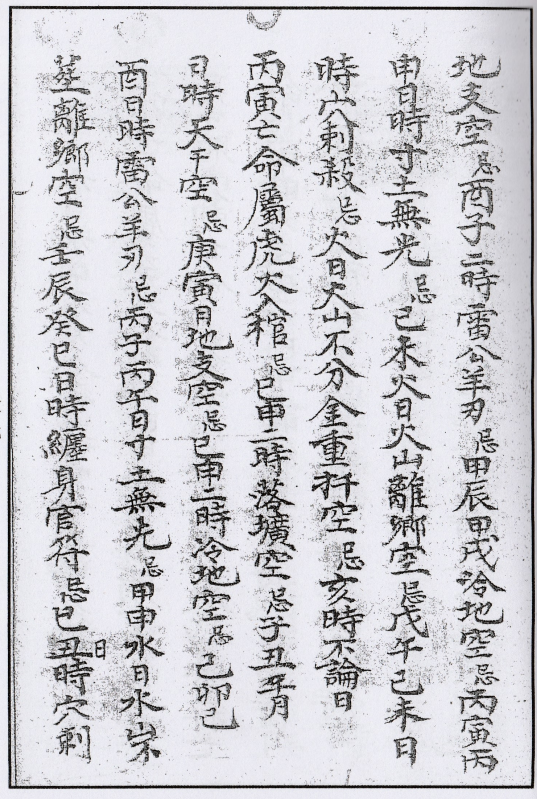 地支空忌酉子二時雷公羊刃忌甲辰甲戌冷地空忌丙寅丙
申日時寸土無光忌己未火日火山離鄉空忌戊午己未日
時穴刺殺忌火日火山不分金重杆空忌亥時不論日
丙寅亡命屬虎火入棺忌巳申二時落壙空忌子丑年月
日時天干空忌庚寅日地支空忌巳申二時冷地空忌己卯己
酉日時雷公羊刃忌丙子丙午日寸土無光忌甲申水日水山不
塟離鄉空忌壬辰癸巳日時纏身官符忌巳丑日時穴刺